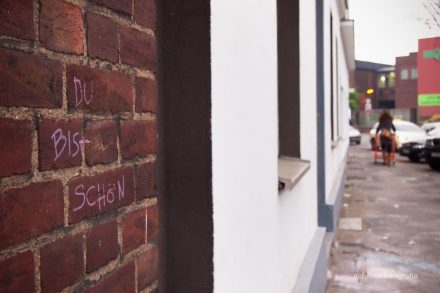 DU
BIST
SCHÖN